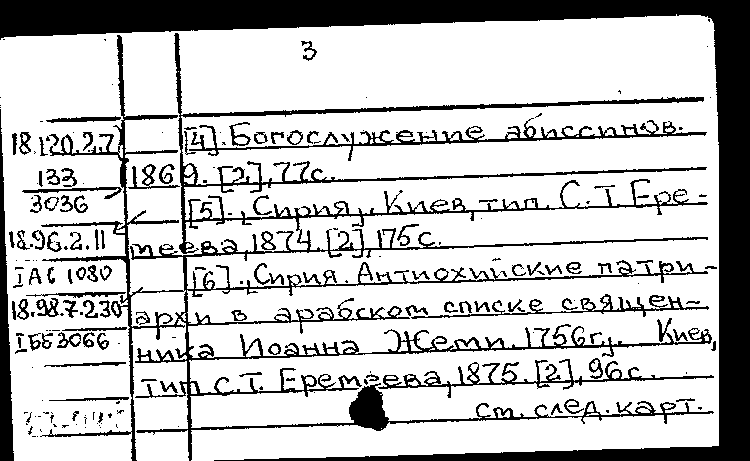 3
18.120.2.7 [4]. Богослужение абиссинов.
133 1869. [2], 77с.
3036 [5]. „Сирия„. Киев, тип. С. Т. Ере-
18.96.2.11 меева, 1874. [2], 175с.
IAC 1080 [6]. „Сирия. Антиохийские патри-
18.98.7.230 архи в арабском списке священ-
IББ3066 ника Иоанна Жеми. 1756г„. Киев,
тип. С. Т. Еремеева, 1875. [2], 96с.
см. след. карт.